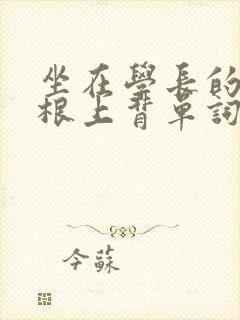 坐在學長的
根上背單詞
今蘇